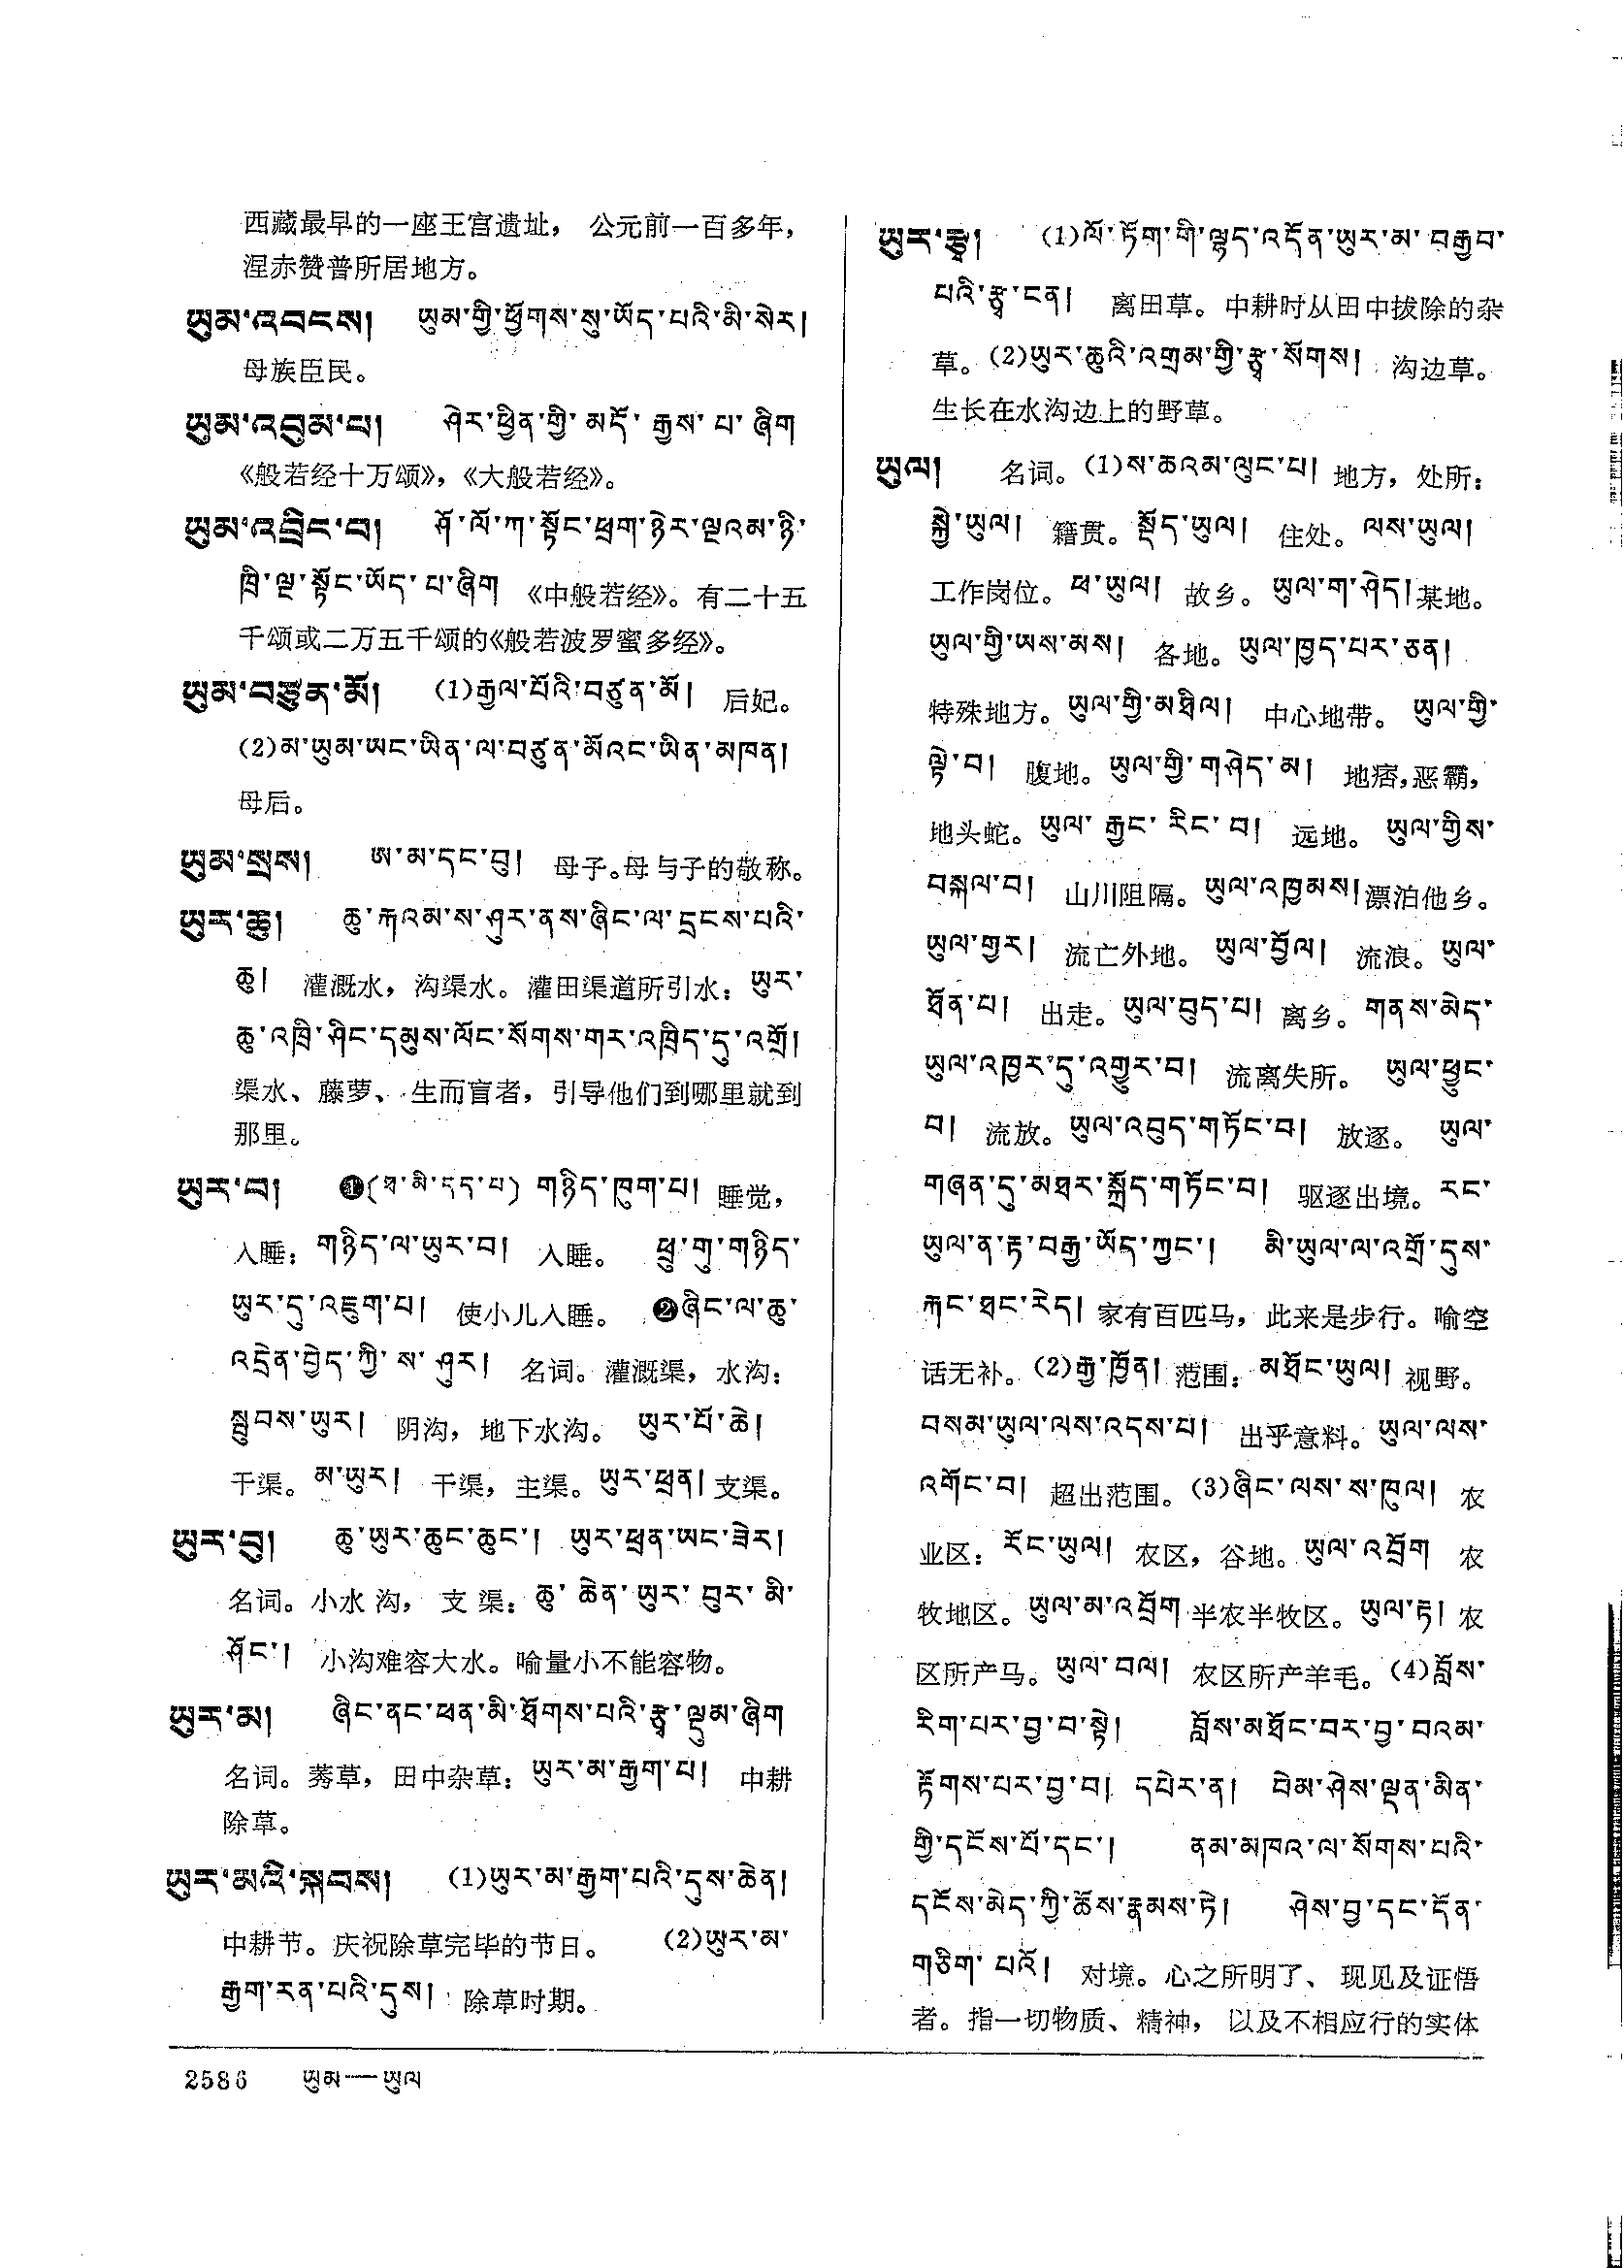 西藏最早的一座王宫遗址， 公元前一百多年，
涅赤赞普所居地方。
ཡུམ་འབངས། ཡུམ་གྱི་ཕྱོགས་སུ་ཡོད་པའི་མི་སེར།
母族臣民。
ཡུམ་འབུམ་པ། ཤེར་ཕྱིན་གྱི་མདོ་རྒྱས་པ་ཞིག
《般若经十万颂》，《大般若经》。
ཡུམ་འབྲིང་བ། ཤོ་ལོ་ཀ་སྟོང་ཕྲག་ཉེར་ལྔའམ་ཉི་
ཁྲི་ལྔ་སྟོང་ཡོད་པ་ཞིག 《中般若经》。有二十五
千颂或二万五千颂的《般若波罗蜜多经》。
ཡུམ་བཙུན་མོ། (1)རྒྱལ་པོའི་བཙུན་མོ། 后妃。
(2)མ་ཡུམ་ཡང་ཡིན་ལ་བཙུན་མོའང་ཡིན་མཁན།
母后。
ཡུམ་སྲས། ཨ་མ་དང་བུ། 母子。母与子的敬称。
ཡུར་ཆུ། ཆུ་རྐའམ་ས་ཤུར་ནས་ཞིང་ལ་དྲངས་པའི་
ཆུ། 灌溉水，沟渠水。灌田渠道所引水：ཡུར་
ཆུ་འཁྲི་ཤིང་དམུས་ལོང་སོགས་གར་འཁྲིད་དུ་འགྲོ།
渠水、藤萝、生而盲者，引导他们到哪里就到
那里。
ཡུར་བ། ❶(ཐ་མི་དད་པ) གཉིད་ཁུག་པ། 睡觉，
入睡：གཉིད་ལ་ཡུར་བ། 入睡。 ཕྲུ་གུ་གཉིད་
ཡུར་དུ་འཇུག་པ། 使小儿入睡。 ❷ཞིང་ལ་ཆུ་
འདྲེན་བྱེད་ཀྱི་ས་ཤུར། 名词。灌溉渠，水沟：
སྦུབས་ཡུར། 阴沟，地下水沟。 ཡུར་པོ་ཆེ།
干渠。མ་ཡུར། 干渠，主渠。ཡུར་ཕྲན། 支渠。
ཡུར་བུ། ཆུ་ཡུར་ཆུང་ཆུང་། ཡུར་ཕྲན་ཡང་ཟེར།
名词。小水沟， 支渠：ཆུ་ཆེན་ཡུར་བུར་མི་
ཤོང་། 小沟难容大水。喻量小不能容物。
ཡུར་མ། ཞིང་ནང་ཕན་མི་ཐོགས་པའི་རྩྭ་ལྡུམ་ཞིག
名词。莠草，田中杂草：ཡུར་མ་རྒྱག་པ། 中耕
除草。
ཡུར་མའི་སྐབས། (1)ཡུར་མ་རྒྱག་པའི་དུས་ཆེན།
中耕节。庆祝除草完毕的节日。 (2)ཡུར་མ་
རྒྱག་རན་པའི་དུས། 除草时期。
ཡུར་རྩྭ། (1)ལོ་ཏོག་གི་ལྷད་འདོན་ཡུར་མ་བརྒྱབ་
པའི་རྩྭ་ངན། 离田草。中耕时从田中拔除的杂
草。(2)ཡུར་ཆུའི་འགྲམ་གྱི་རྩྭ་སོགས། 沟边草。
生长在水沟边上的野草。
ཡུལ། 名词。(1)ས་ཆའམ་ལུང་པ། 地方，处所：
སྐྱེ་ཡུལ། 籍贯。སྡོད་ཡུལ། 住处。ལས་ཡུལ།
工作岗位。ཕ་ཡུལ། 故乡。ཡུལ་ག་ཤེད། 某地。
ཡུལ་གྱི་ཡས་མས། 各地。ཡུལ་ཁྱད་པར་ཅན།
特殊地方。ཡུལ་གྱི་མཐིལ། 中心地带。 ཡུལ་གྱི་
ལྟེ་བ། 腹地。ཡུལ་གྱི་གཤེད་མ། 地痞，恶霸，
地头蛇。ཡུལ་རྒྱང་རིང་བ། 远地。 ཡུལ་གྱིས་
བསྐལ་བ། 山川阻隔。ཡུལ་འཁྱམས། 漂泊他乡。
ཡུལ་གྱར། 流亡外地。 ཡུལ་བྱོལ། 流浪。 ཡུལ་
ཐོན་པ། 出走。ཡུལ་བུད་པ། 离乡。གནས་མེད་
ཡུལ་འཁྱར་དུ་འགྱུར་བ། 流离失所。 ཡུལ་ཕྱུང་
བ། 流放。ཡུལ་འབུད་གཏོང་བ། 放逐。 ཡུལ་
གཞན་དུ་མཐར་སྐྲོད་གཏོང་བ། 驱逐出境。རང་
ཡུལ་ན་རྟ་བརྒྱ་ཡོད་ཀྱང་། མི་ཡུལ་ལ་འགྲོ་དུས་
རྐང་ཐང་རེད། 家有百匹马，此来是步行。喻空
话无补。(2)རྒྱ་ཁྱོན། 范围：མཐོང་ཡུལ། 视野。
བསམ་ཡུལ་ལས་འདས་པ། 出乎意料。ཡུལ་ལས་
འགོང་བ། 超出范围。(3)ཞིང་ལས་ས་ཁུལ། 农
业区：རོང་ཡུལ། 农区，谷地。ཡུལ་འབྲོག 农
牧地区。ཡུལ་མ་འབྲོག 半农半牧区。ཡུལ་རྟ། 农
区所产马。ཡུལ་བལ། 农区所产羊毛。(4)བློས་
རིག་པར་བྱ་བ་སྟེ། བློས་མཐོང་བར་བྱ་བའམ་
རྟོགས་པར་བྱ་བ། དཔེར་ན། བེམ་ཤེས་ལྡན་མིན་
གྱི་དངོས་པོ་དང་། ནམ་མཁའ་ལ་སོགས་པའི་
དངོས་མེད་ཀྱི་ཆོས་རྣམས་ཏེ། ཤེས་བྱ་དང་དོན་
གཅིག་པའོ། 对境。心之所明了、现见及证悟
者。指一切物质、精神， 以及不相应行的实体
2586 ཡུམ—ཡུལ